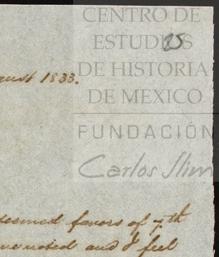 CENTRO DE
ESTUDIOS
25
DE HISTORIA
gust 1833.
DE MEXICO
FUNDACIÓN
Carlos Slim
esteemed favors of 7th
noted and I feel